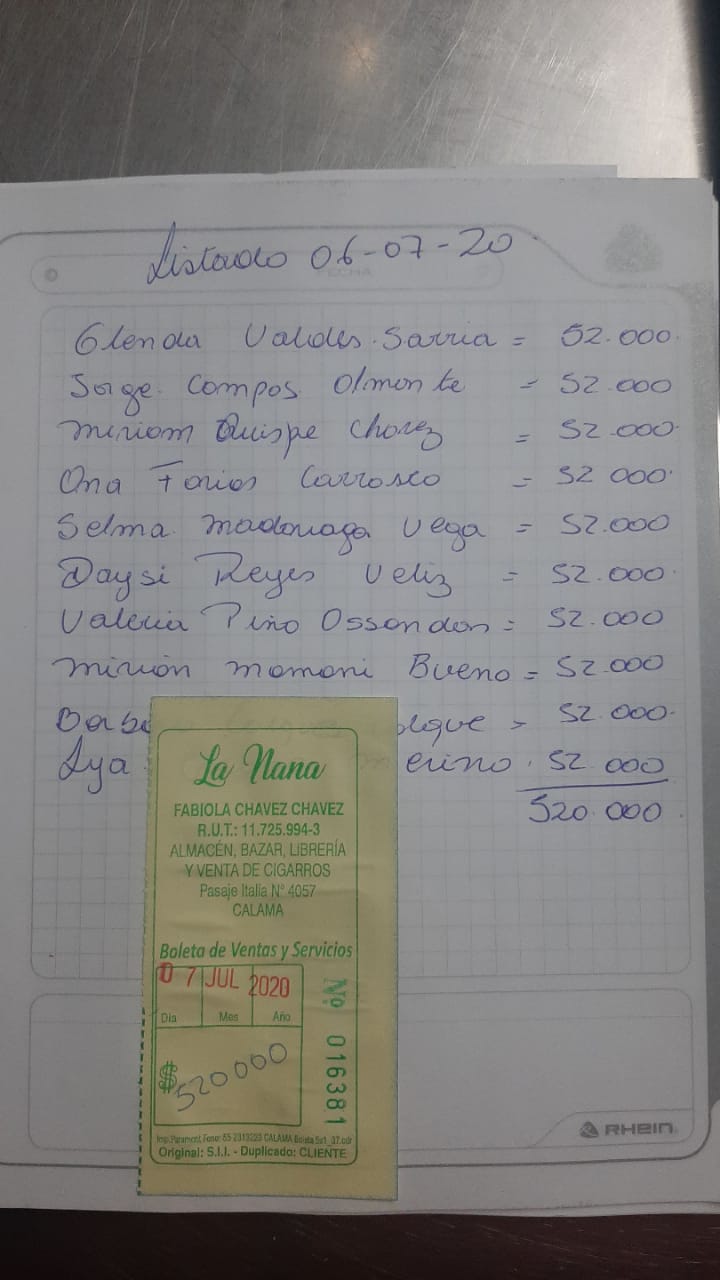 Listado 06-07-20
FECHA
Glenda Valdes Sarria = 52.000
Jorge Campos Olmonte = 52.000
Miriam Quispe Chavez = 52.000
Ana Farias Carrasco = 52 000
Selma Madariaga Vega = 52.000
Daysi Reyes Veliz = 52.000
Valeria Piño Ossandon = 52.000
Mirian Mamani Bueno = 52.000
= 52.000
Lya 52 000
520.000
La Nana
FABIOLA CHAVEZ CHAVEZ
R.U.T.: 11.725.994-3
ALMACÉN, BAZAR, LIBRERÍA
Y VENTA DE CIGARROS
Pasaje Italia N° 4057
CALAMA
Boleta de Ventas y Servicios
07 JUL 2020
Día Mes Año
$ 520000
Nº 016381
Imp. Paramont Fono: 55 2313223 CALAMA
Original: S.I.I. - Duplicado: CLIENTE
RHEIN